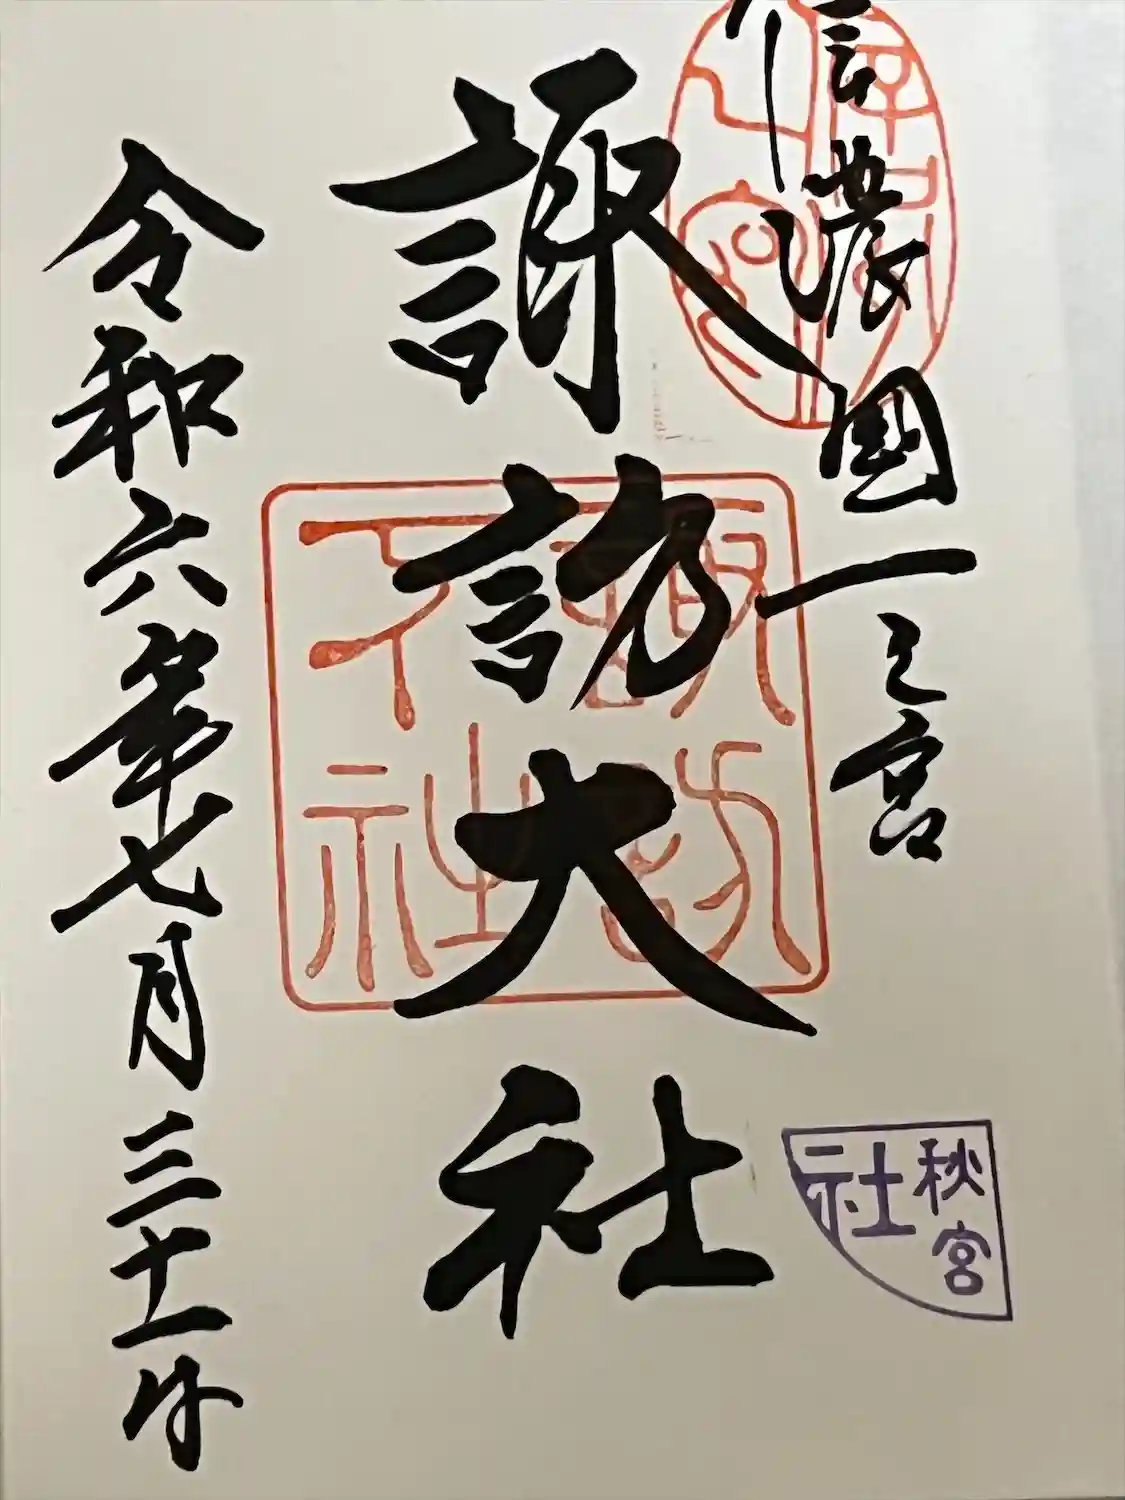 信濃國一之宮
諏訪大社
秋宮
社
令和六年七月三十一日